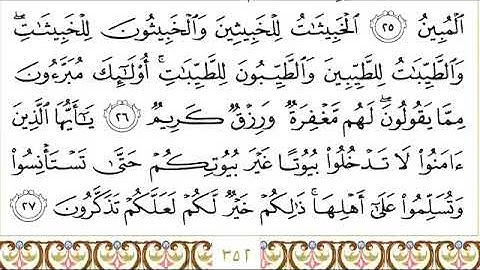 ٱلۡمُبِينُ ٢٥ ٱلۡخَبِيثَٰتُ لِلۡخَبِيثِينَ وَٱلۡخَبِيثُونَ لِلۡخَبِيثَٰتِۖ
وَٱلطَّيِّبَٰتُ لِلطَّيِّبِينَ وَٱلطَّيِّبُونَ لِلطَّيِّبَٰتِۚ أُوْلَٰٓئِكَ مُبَرَّءُونَ
مِمَّا يَقُولُونَۖ لَهُم مَّغۡفِرَةٞ وَرِزۡقٞ كَرِيمٞ ٢٦ يَٰٓأَيُّهَا ٱلَّذِينَ
ءَامَنُواْ لَا تَدۡخُلُواْ بُيُوتًا غَيۡرَ بُيُوتِكُمۡ حَتَّىٰ تَسۡتَأۡنِسُواْ
وَتُسَلِّمُواْ عَلَىٰٓ أَهۡلِهَاۚ ذَٰلِكُمۡ خَيۡرٞ لَّكُمۡ لَعَلَّكُمۡ تَذَكَّرُونَ ٢٧
٣٥٢